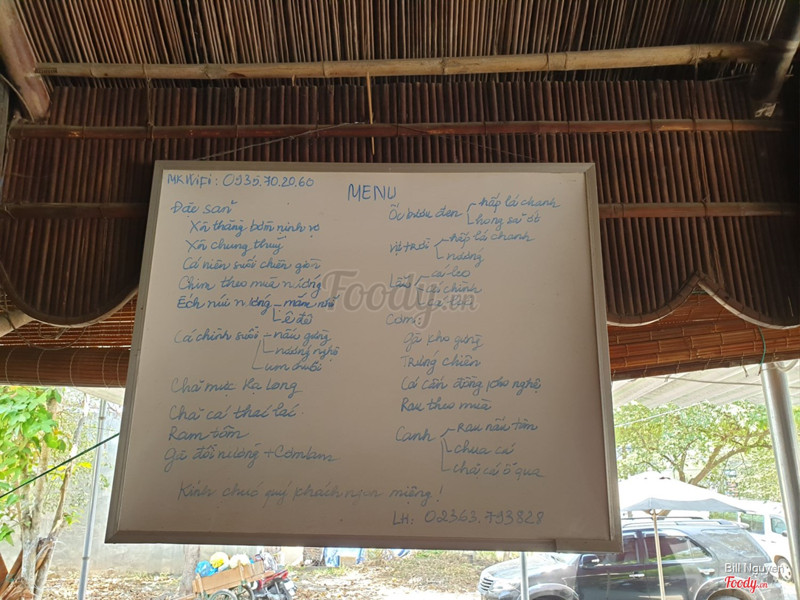 MKWiFi: 0935.70.20.60
MENU
Đặc sản
Xôi thăng bờm nịnh vợ
Xôi chung thuỷ
Cá niên suối chiên giòn
Chim theo mùa nướng
Ếch núi nướng - măm nhỏ
- lá đỏ
Cá chình suối - nấu gừng
- nướng nghệ
- um chuối
Chả mực Hạ Long
Chả cá thác lác
Ram tôm
Gà đồi nướng + Cơm lam
Kính chúc quý khách ngon miệng!
Ốc bươu đen - hấp lá chanh
Vịt trời - hấp lá chanh
- nướng
Lẩu - cá leo
- cá chình
Cơm:
Gà kho gừng
Trứng chiên
Cá cấn đồng kho nghệ
Rau theo mùa
Canh - Rau nấu tôm
- chua cá
- chả cá ổ qua
LH: 02363.793828
Foody.vn
Bill Nguyen
Foody.vn